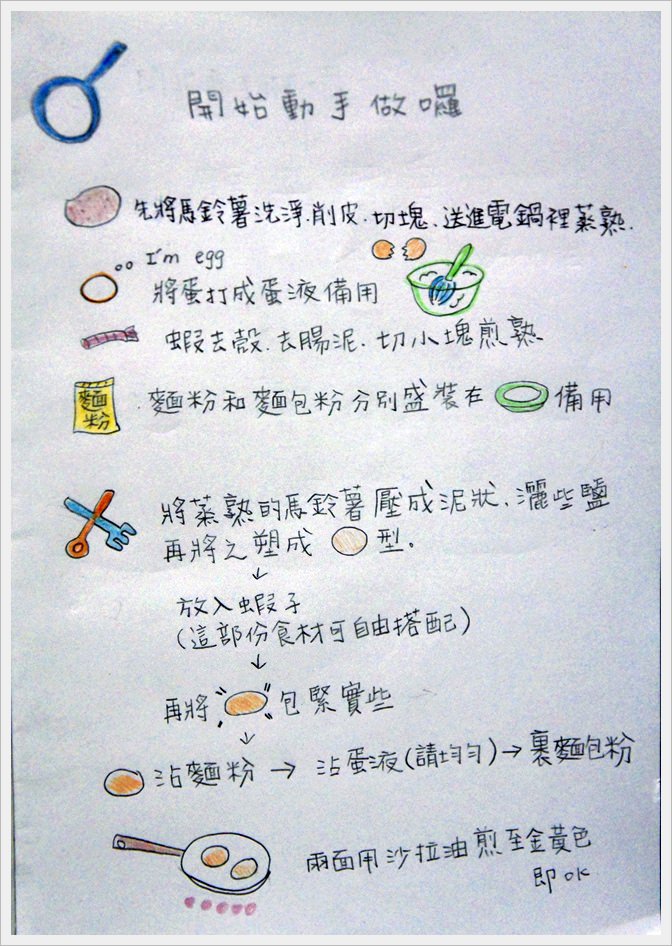 開始動手做囉
先將馬鈴薯洗淨.削皮.切塊、送進電鍋裡蒸熟.
I'm egg
將蛋打成蛋液備用
蝦去殼.去腸泥.切小塊煎熟
麵粉
麵粉和麵包粉分別盛裝在 備用
將蒸熟的馬鈴薯壓成泥狀、灑些鹽
再將之塑成 型。
↓
放入蝦子
(這部份食材可自由搭配)
↓
再將 包緊實些
↓
沾麵粉 → 沾蛋液(請均勻) → 裹麵包粉
兩面用沙拉油煎至金黃色
即OK